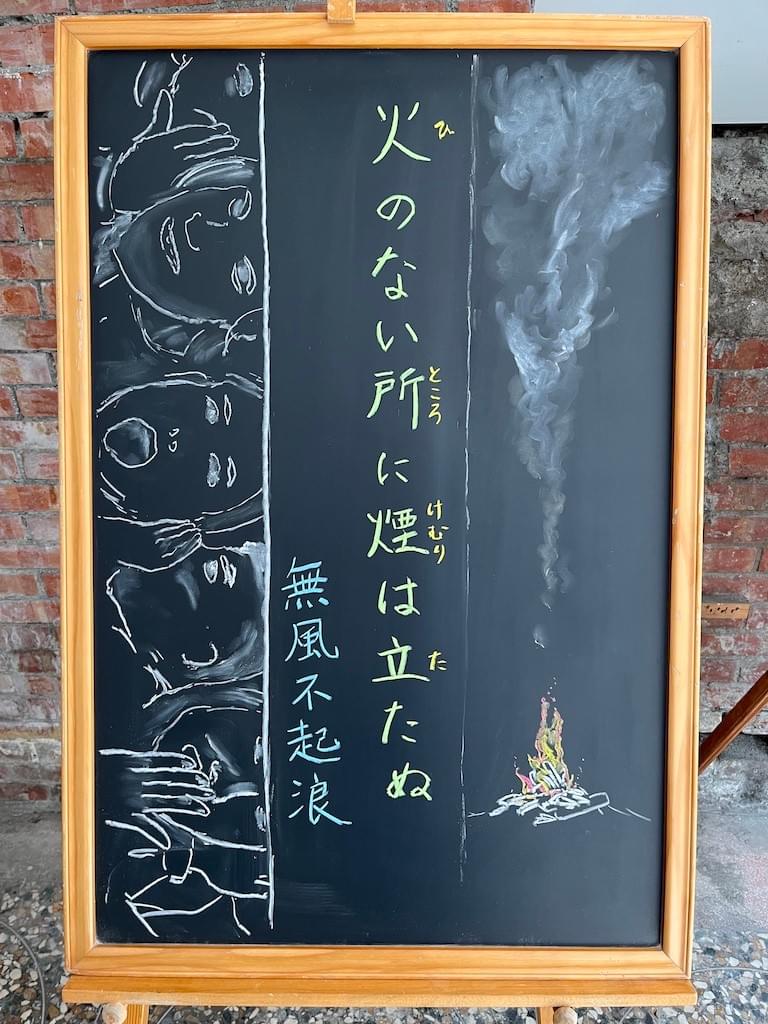 火のない所に煙は立たぬ
ひ
ところ
けむり
た
無風不起浪